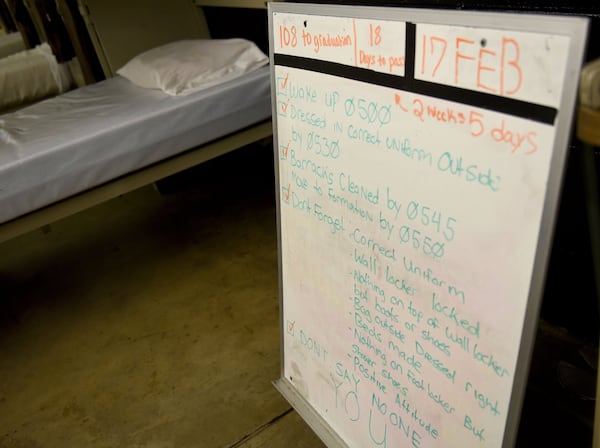 108 to graduation
18
Days to pass
17 FEB
2 weeks 5 days
Wake up 0500
Dressed in correct Uniform outside
by 0530
Barracks Cleaned by 0545
Move to Formation by 0550
Dont Forget - Correct Uniform
- Wall locker locked
- Nothing on top of wall locker
but boots or shoes
- Bag outside Dressed right
- Beds made
- Nothing on Footlocker But
shower shoes
- Positive Attitude
DONT SAY NO ONE
YOU